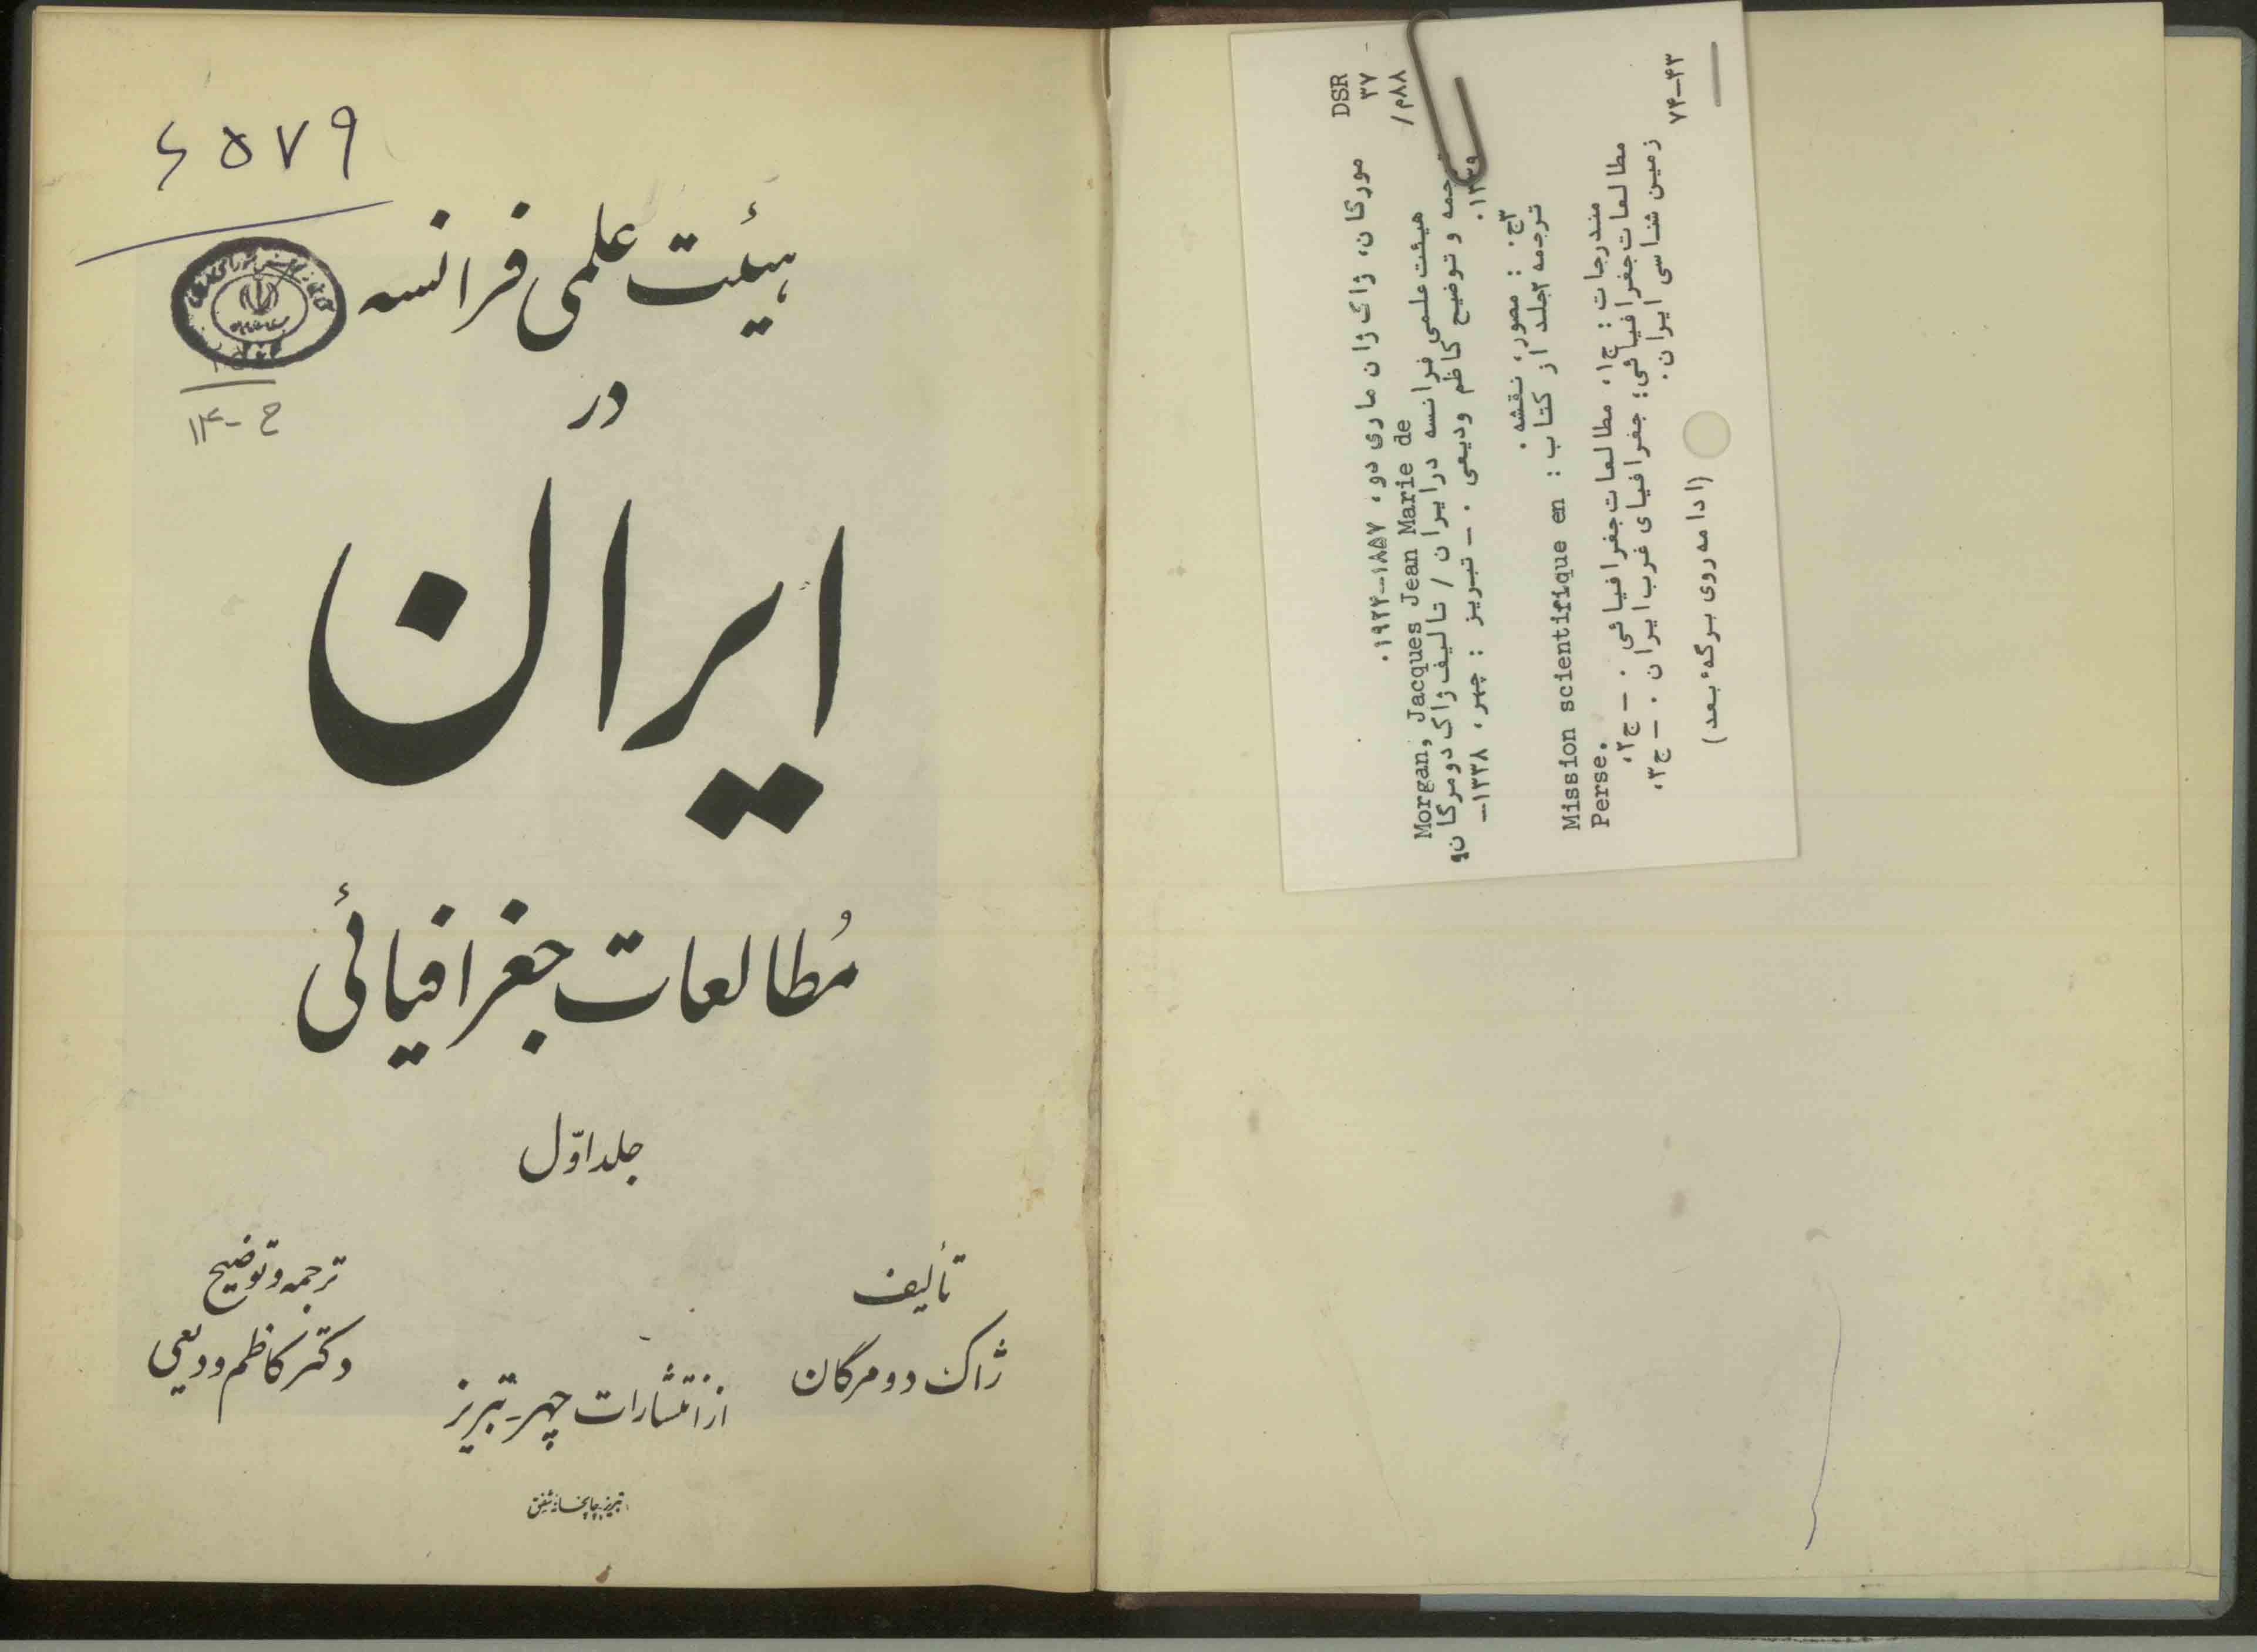 ۶۵۷۹
هیئت علمی فرانسه
در
ایران
مُطالعات جغرافیائی
جلد اوّل
تألیف
ژاک دومرگان
ترجمه و توضیح
دکتر کاظم ودیعی
از انتشارات چهر - تبریز
تبریز چاپخانه شفق
۱۴-ح
DSR
۳۷
/م۸۸
مورگان، ژاک ژان ماری دو، ۱۸۵۷-۱۹۲۴.
Morgan, Jacques Jean Marie de
هیئت علمی فرانسه در ایران / تالیف ژاک دومرگان؛
ترجمه و توضیح کاظم ودیعی. - تبریز : چهر، ۱۳۳۸-
۱۳۳۹.
۳ج. : مصور، نقشه.
ترجمه ۲جلد از کتاب : Mission scientifique en
Perse.
مندرجات : ج۱. مطالعات جغرافیائی. - ج۲.
مطالعات جغرافیائی؛ جغرافیای غرب ایران. - ج۳.
زمین شناسی ایران.
۷۴-۴۳
(ادامه روی برگه بعد)